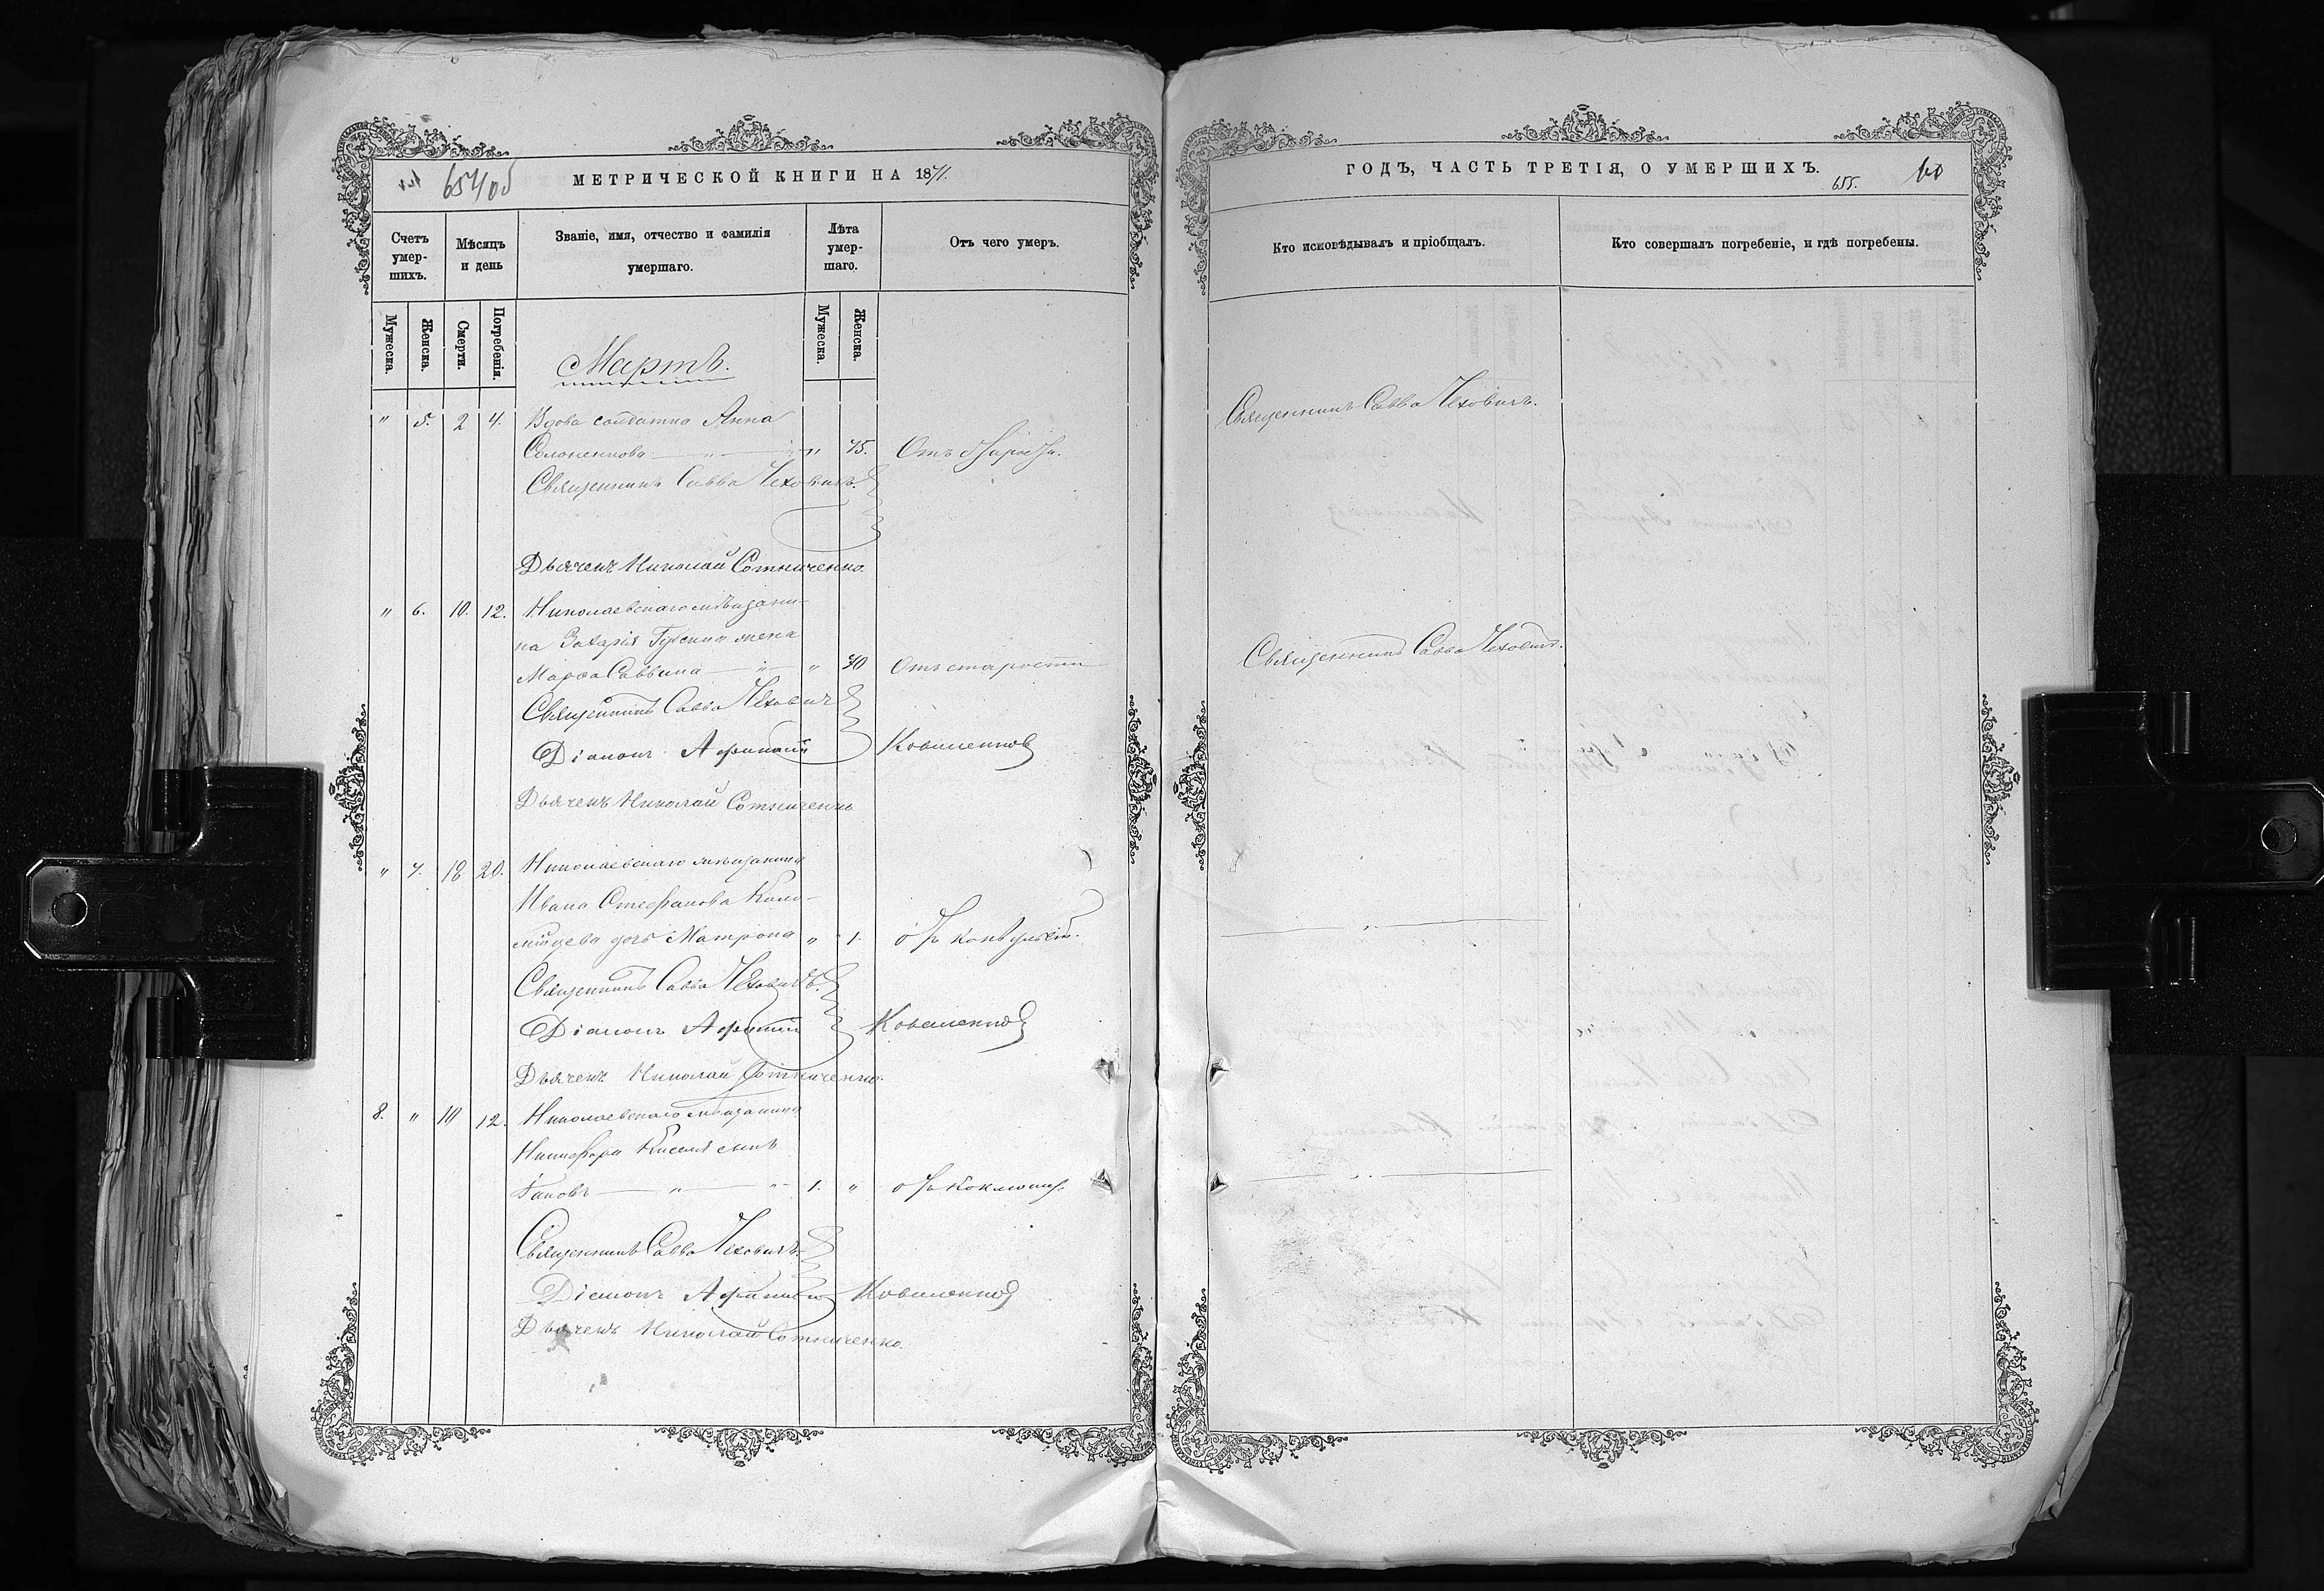 65405
МЕТРИЧЕСКОЙ КНИГИ НА 1871.
Счетъ умер-шихъ.
Мѣсяцъ и день
Званіе, имя, отчество и фамилія умершаго.
Лѣта умер-шаго.
Отъ чего умеръ.
Мужеска.
Женска.
Смерти.
Погребенія.
Мужеска.
Женска.
Мартъ.
" 5. 2 4. Вдова солдатка Анна
Солоненкова " " 75. Отъ старости.
Священникъ Савва Чеховичъ.
Дьячекъ Николай Сотниченко.
" 6. 10. 12. Николаевскаго мѣщани-
на Захарія жена
Марѳа Саввина " " 70 Отъ старости
Священникъ Савва Чеховичъ
Діаконъ Коваленковъ
Дьячекъ Николай Сотниченко
" 7. 18 20. Николаевскаго мѣщанина
Ивана Стефанова Коло-
мійцева дочь Матрона " 1. отъ конвульсій.
Священникъ Савва Чеховичъ.
Діаконъ Коваленковъ
Дьячекъ Николай Сотниченко.
8. " 10 12. Николаевскаго мѣщанина
Никифора Киселя сынъ
Іаковъ " " 1. " отъ коклюша.
Священникъ Савва Чеховичъ.
Діаконъ Коваленковъ
Дьячекъ Николай Сотниченко.
ГОДЪ, ЧАСТЬ ТРЕТІЯ, О УМЕРШИХЪ.
655.
60
Кто исповѣдывалъ и пріобщалъ.
Кто совершалъ погребеніе, и гдѣ погребены.
Священникъ Савва Чеховичъ.
Священникъ Савва Чеховичъ.